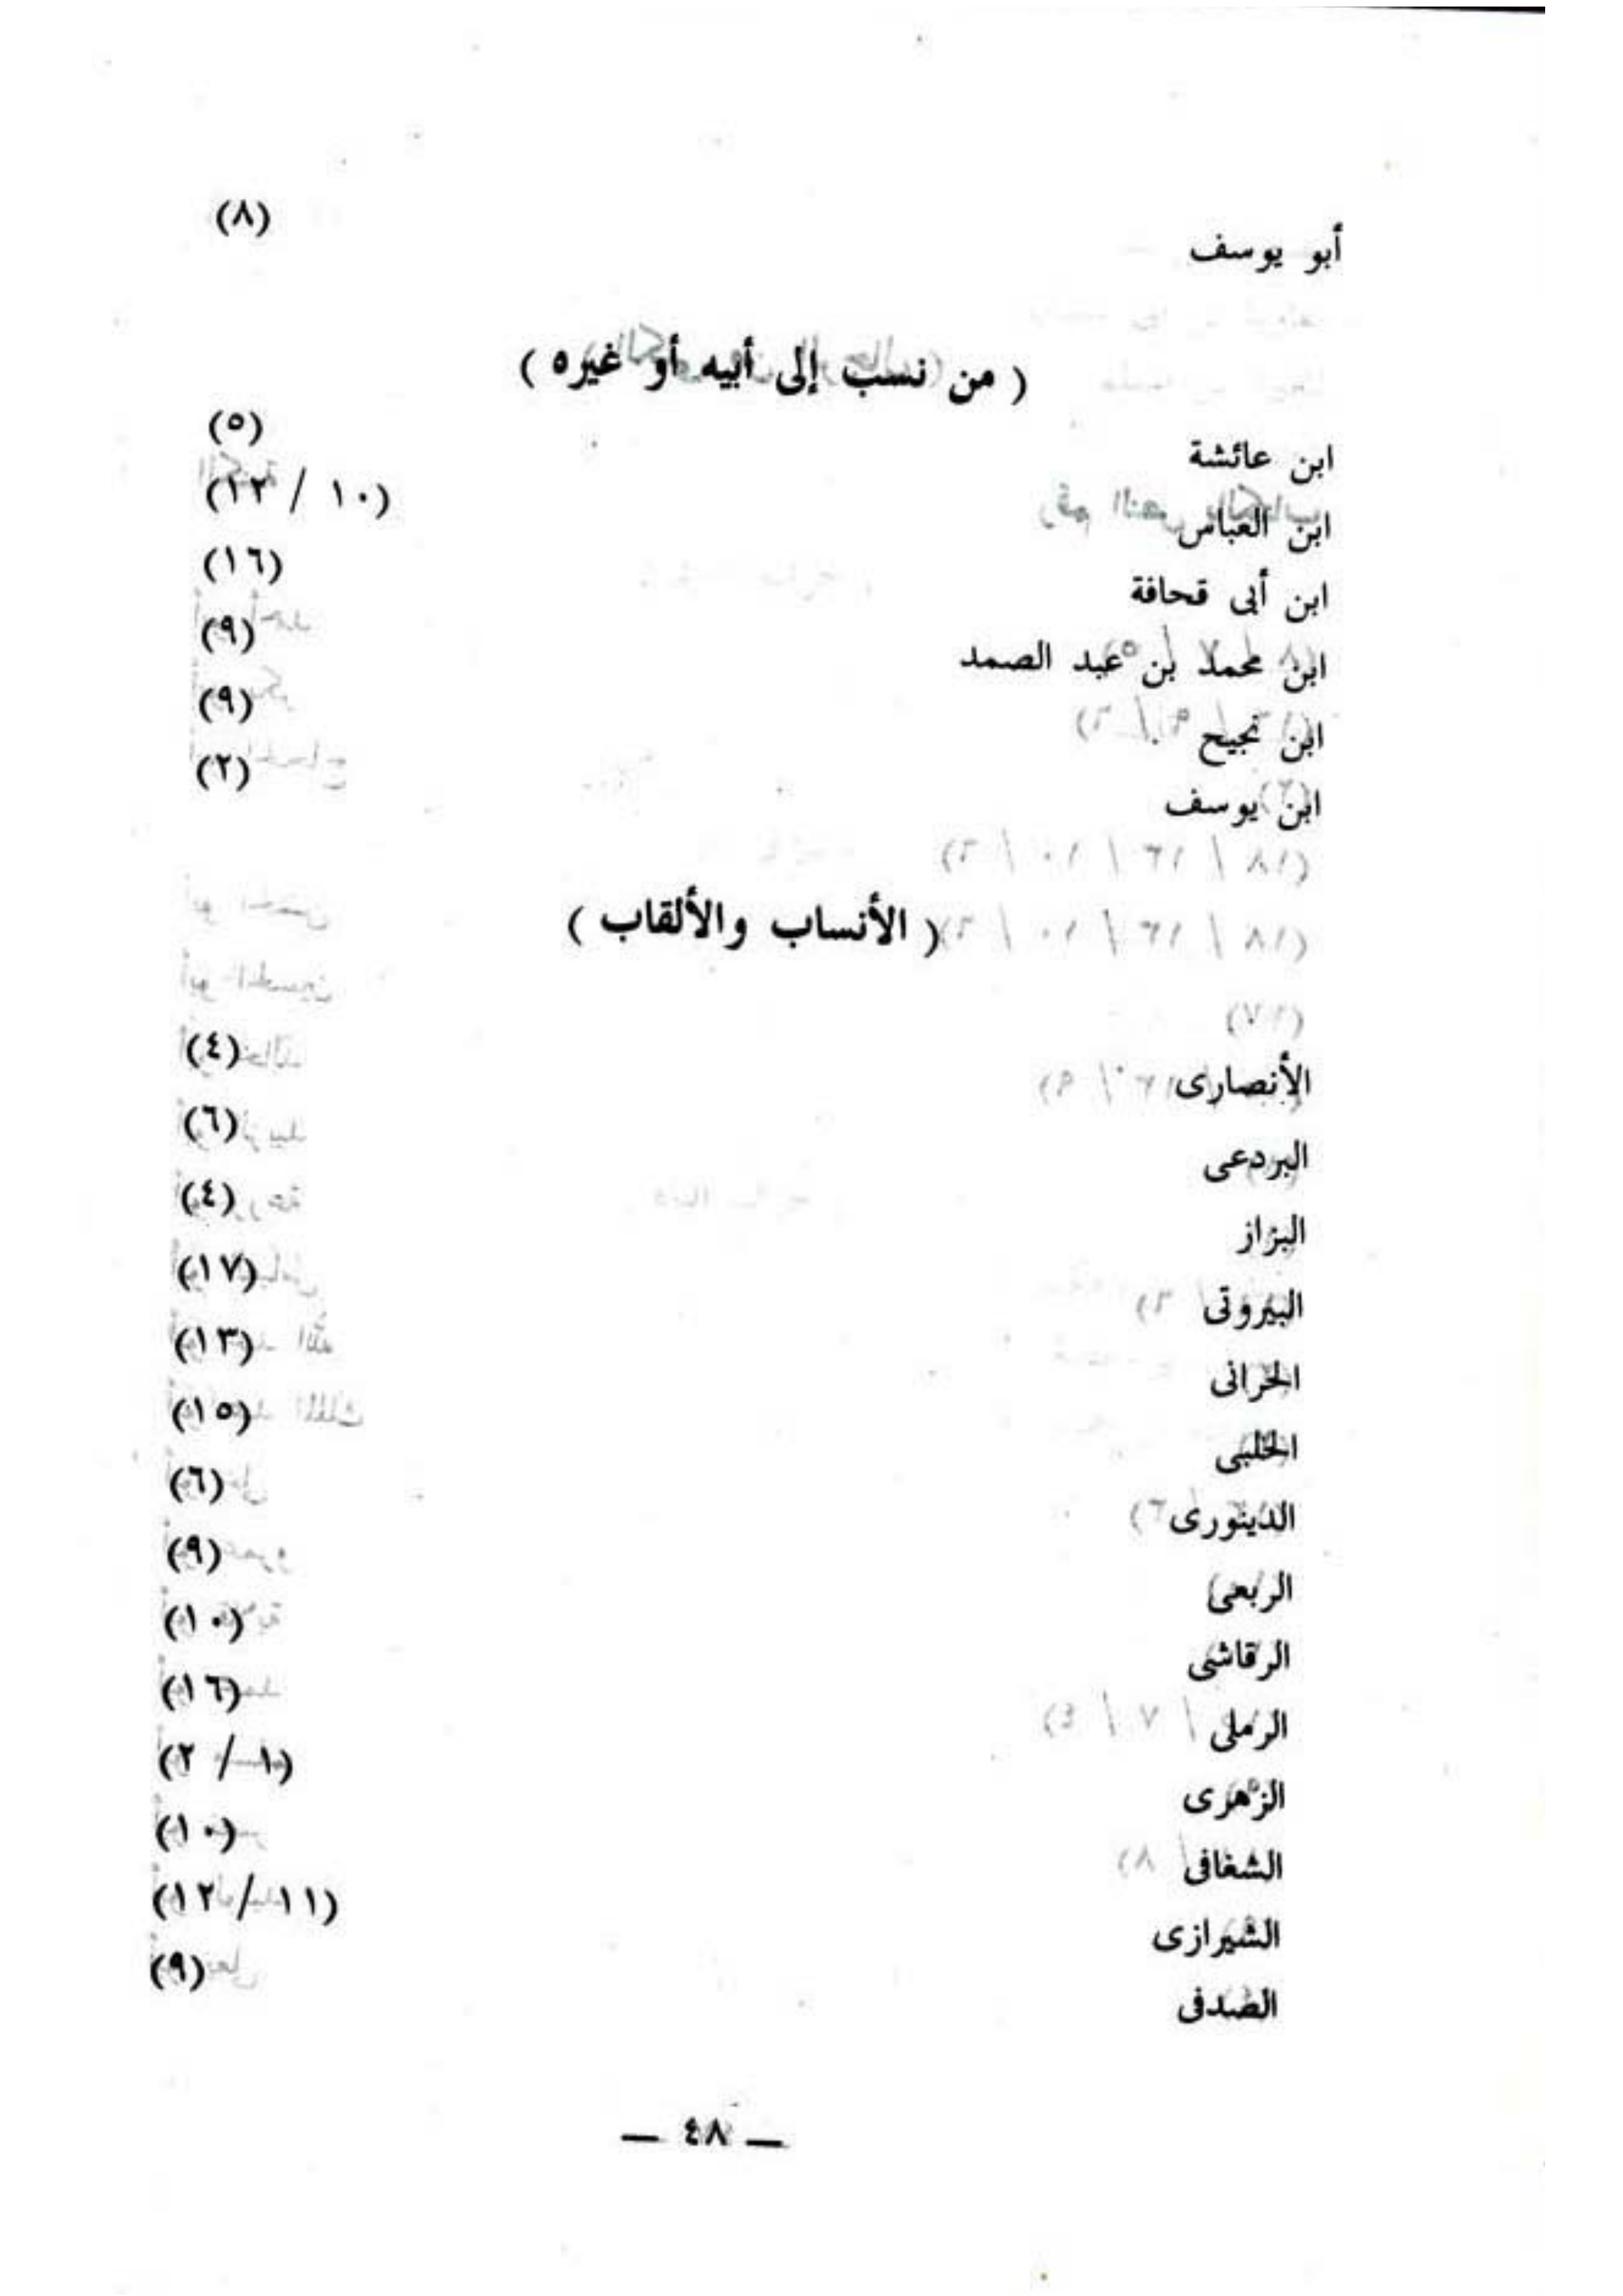 أبو يوسف (٨)
( من نسب إلى أبيه أو غيره )
ابن عائشة (٥)
ابن العباس (١٠ / ١٢)
ابن أبى قحافة (١٦)
ابن محمد بن عبد الصمد (٩)
ابن نجيح (٩)
ابن يوسف (٢)
( الأنساب والألقاب )
الأنصارى (٤)
البردعى (٦)
البزاز (٤)
البيروتى (١٧)
الحرانى (١٣)
الحلبى (١٥)
الدينورى (٦)
الربعى (٩)
الرقاشى (١٠)
الرملى (١٦)
الزهرى (١ / ٢)
الشغافى (١٠)
الشيرازى (١١ / ١٢)
الصدفى (٩)
— ٤٨ —